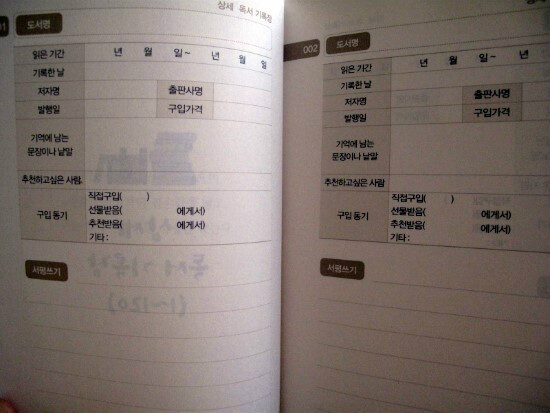 상세 독서 기록장
도서명
읽은 기간 년 월 일 ~ 년 월 일
기록한 날
저자명 출판사명
발행일 구입가격
기억에 남는
문장이나 낱말
추천하고싶은 사람.
구입 동기
직접구입( )
선물받음( 에게서)
추천받음( 에게서)
기타 :
서평쓰기
독서기록장
(1~120)
002 도서명
읽은 기간 년 월 일 ~ 년 월 일
기록한 날
저자명 출판사명
발행일 구입가격
기억에 남는
문장이나 낱말
추천하고싶은 사람
구입 동기
직접구입( )
선물받음( 에게서)
추천받음( 에게서)
기타 :
서평쓰기